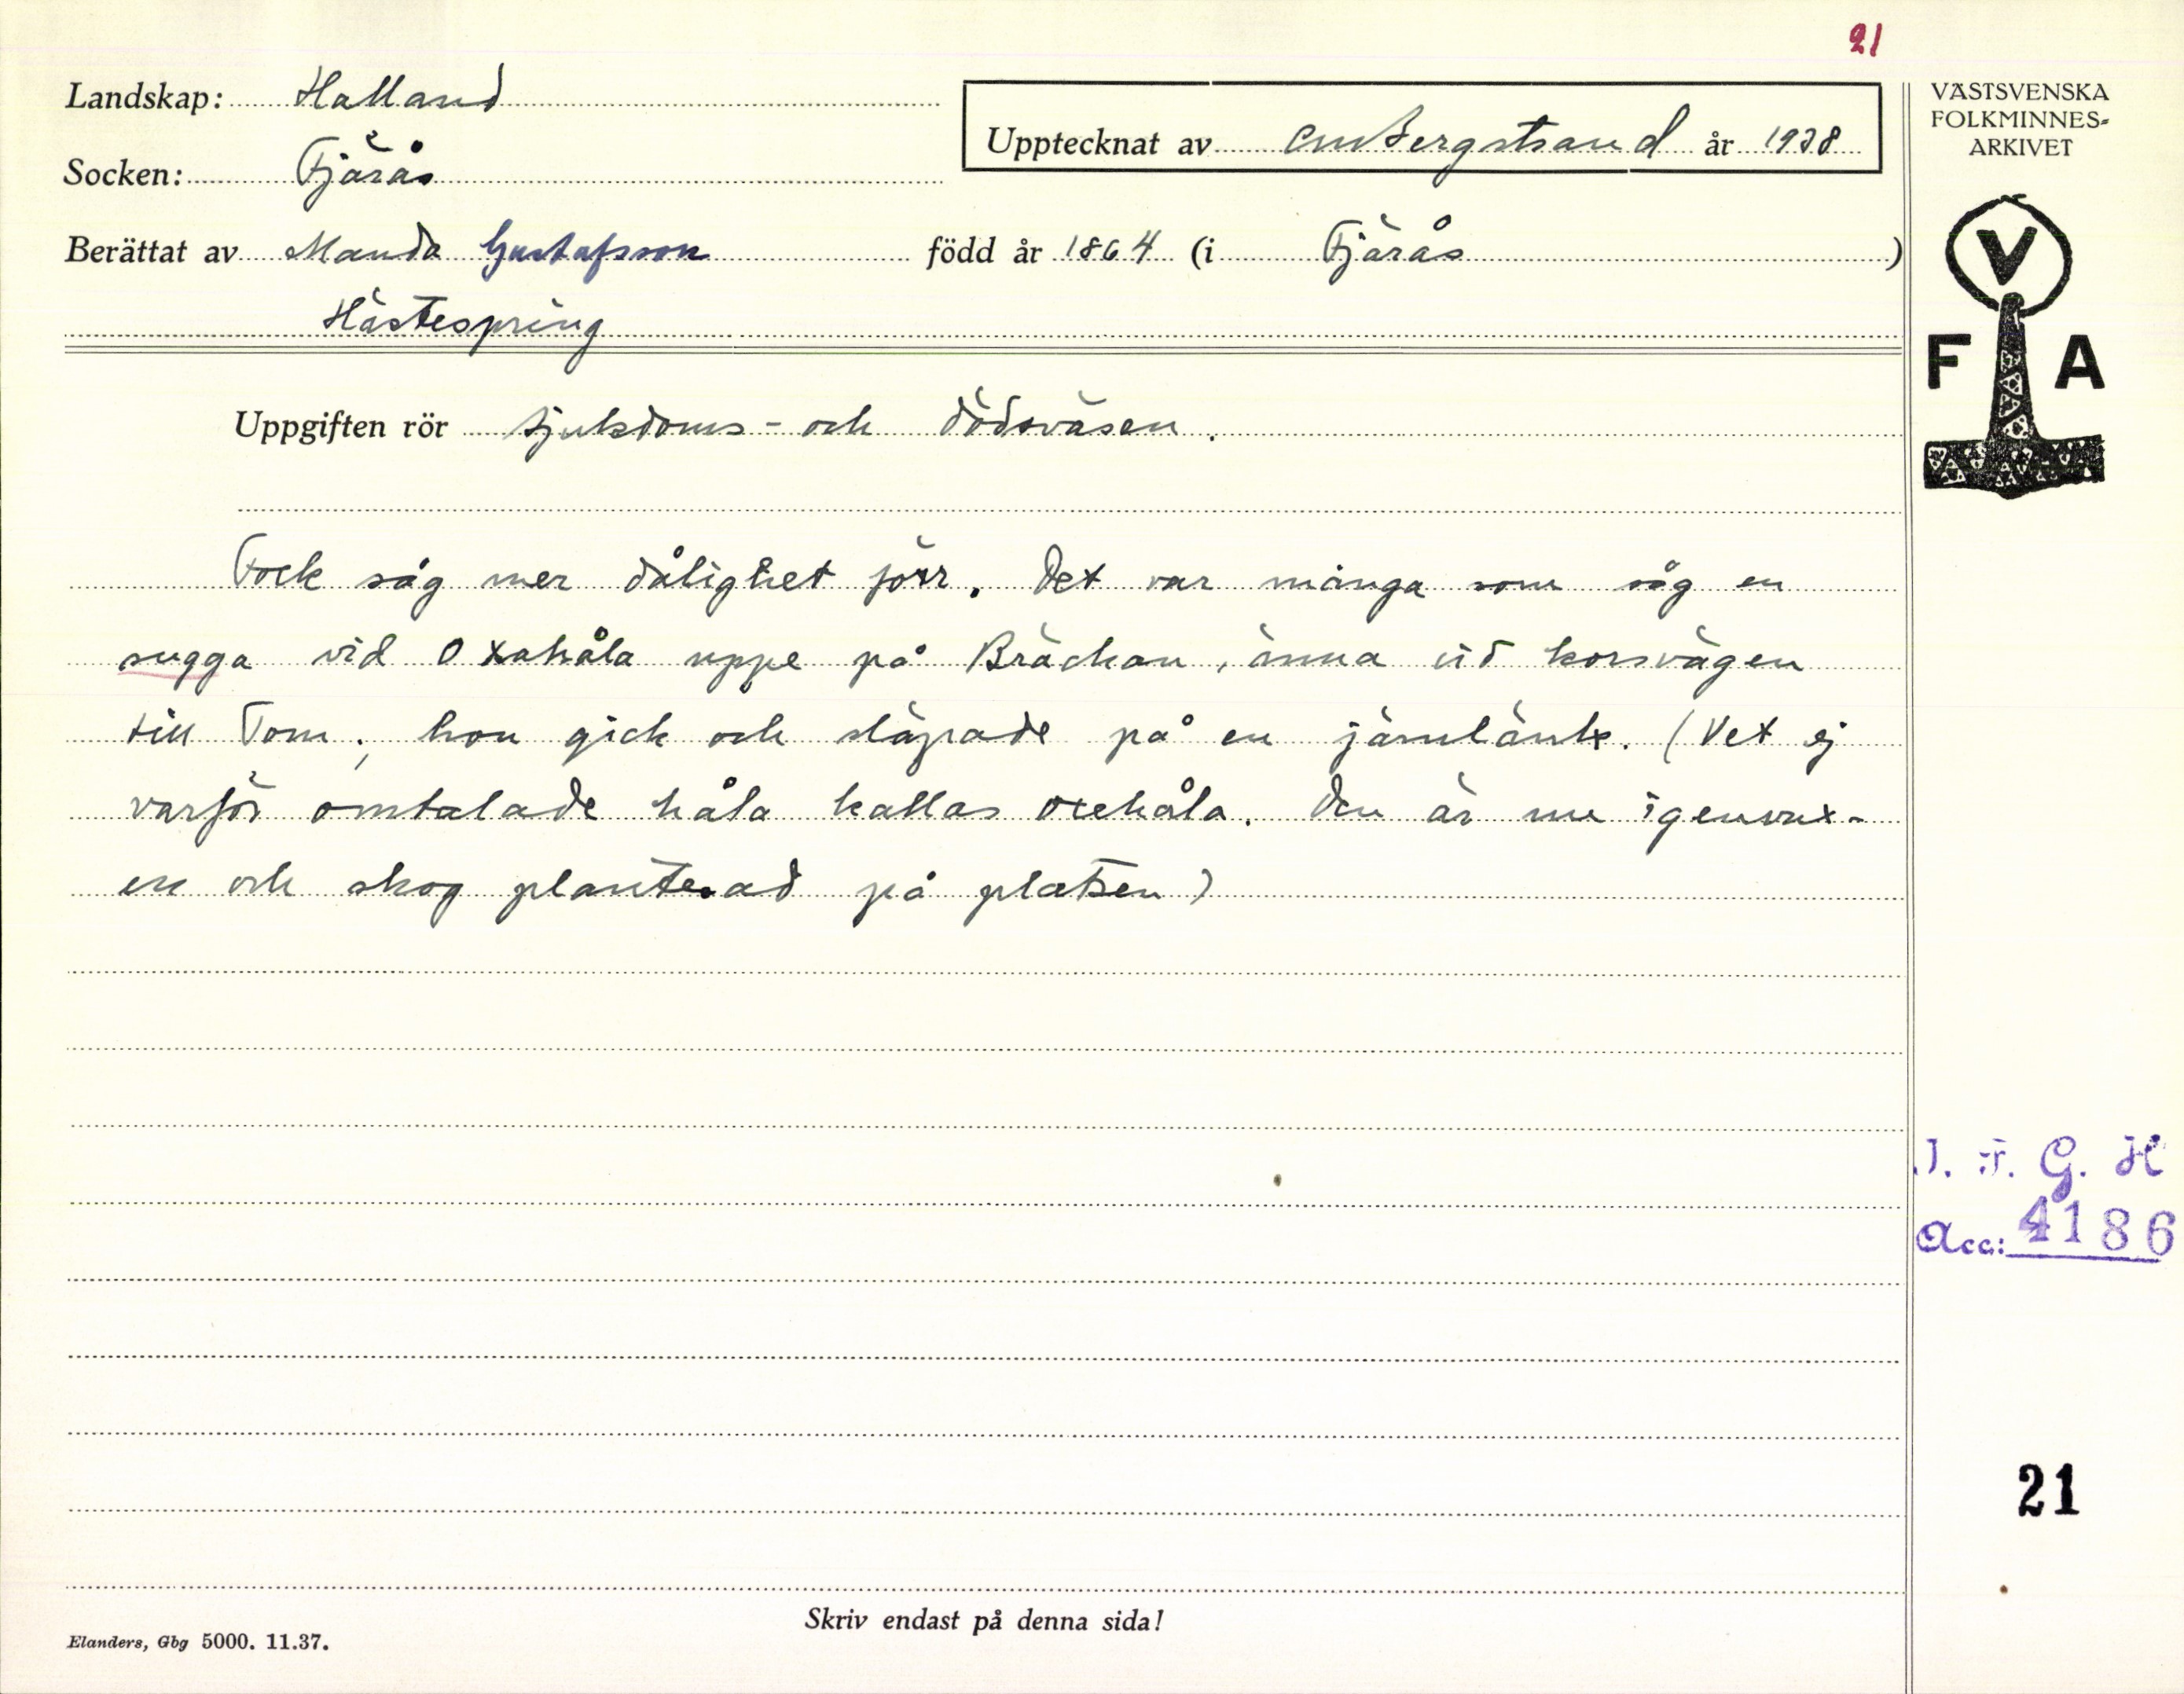 21
Landskap: Halland
Upptecknat av CM Bergstrand år 1938
VÄSTSVENSKA
FOLKMINNES-
ARKIVET
Socken: Fjärås
Berättat av Manda Gustafsson född år 1864 (i Fjärås )
Hästespring
V
F A
Uppgiften rör sjukdoms- och dödsväsen.
Fock såg mer dålighet förr. Det var många som såg en
sugga vid Oxahåla uppe på Bräckan, änna vid korsvägen
till Tom; hon gick och släpade på en järnlänk. (Vet ej
varför omtalade håla kallas oxehåla. Den är nu igenvux-
en och skog planterad på platsen)
I. F. G. H
Acc: 4186
21
Skriv endast på denna sida!
Elanders, Gbg 5000. 11.37.